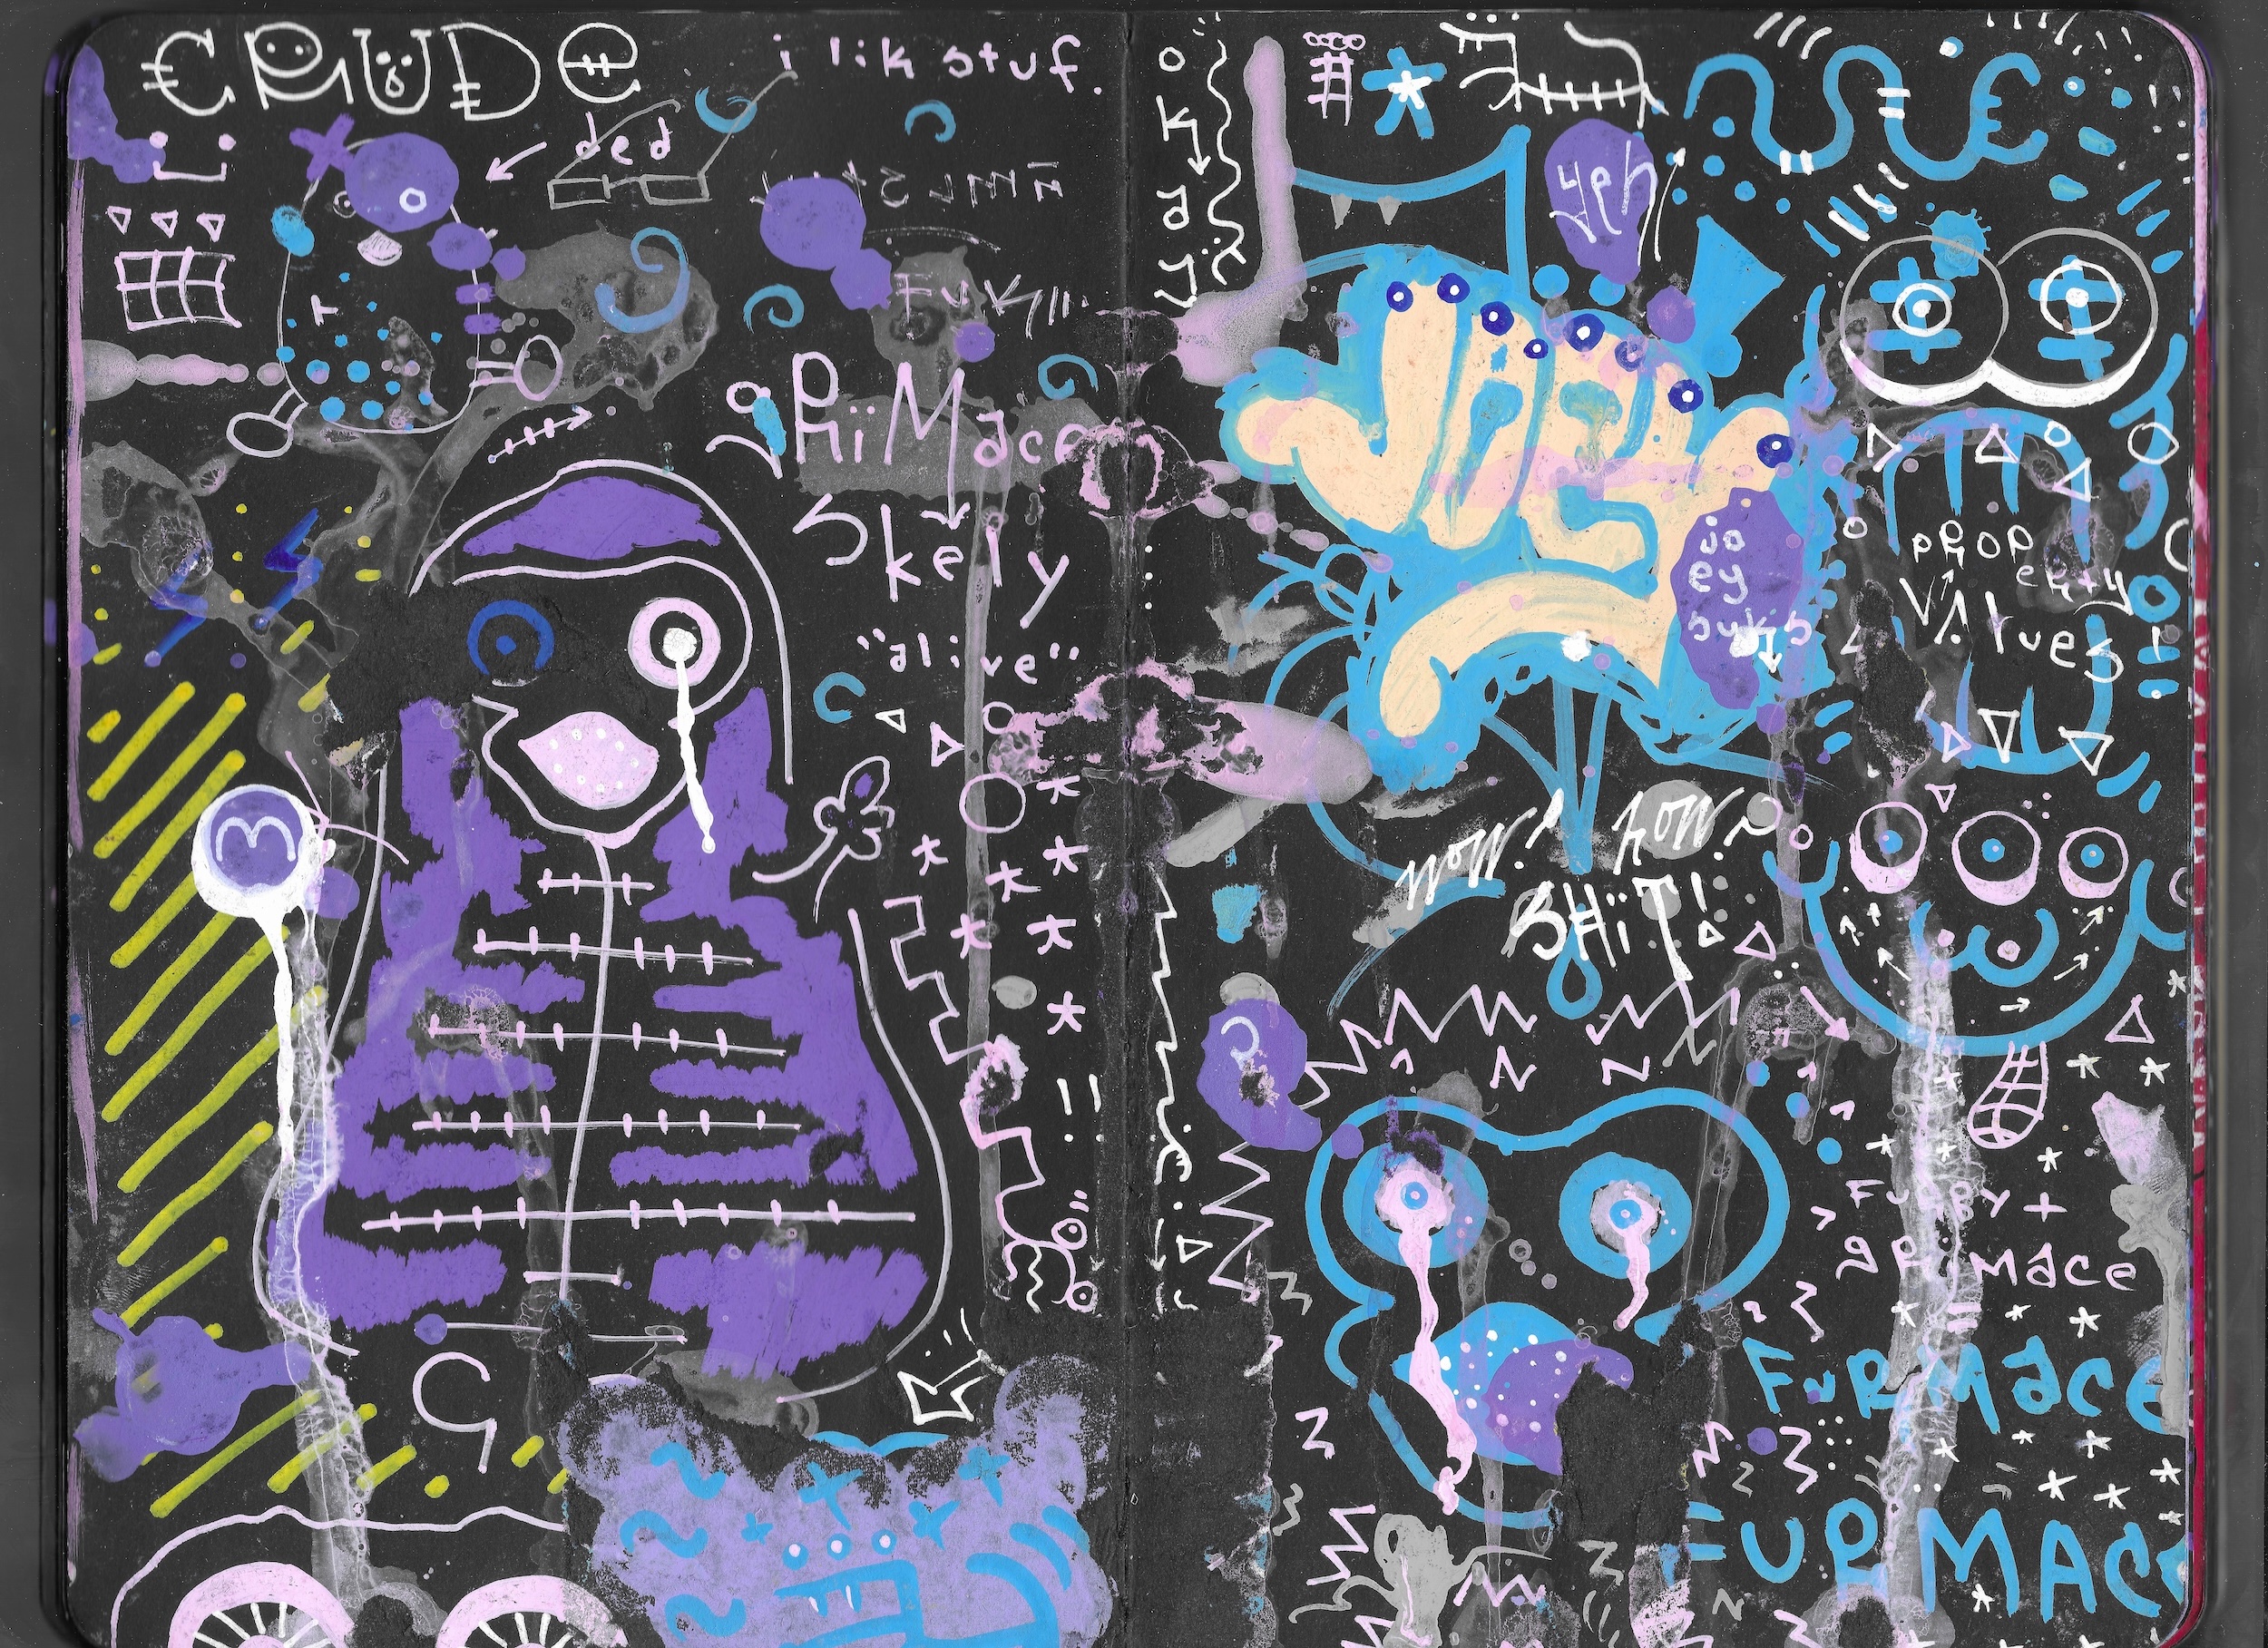 CRUDE
i lik stuf.
ded
FuK
gRiMace
Skely
"alive"
okay
yeh
JOEY
jo
ey
suks
PROP
erty
VAlues
!
now! how?
SHiT!
Furby +
gRiMace
=
FuRMace
FURMAC